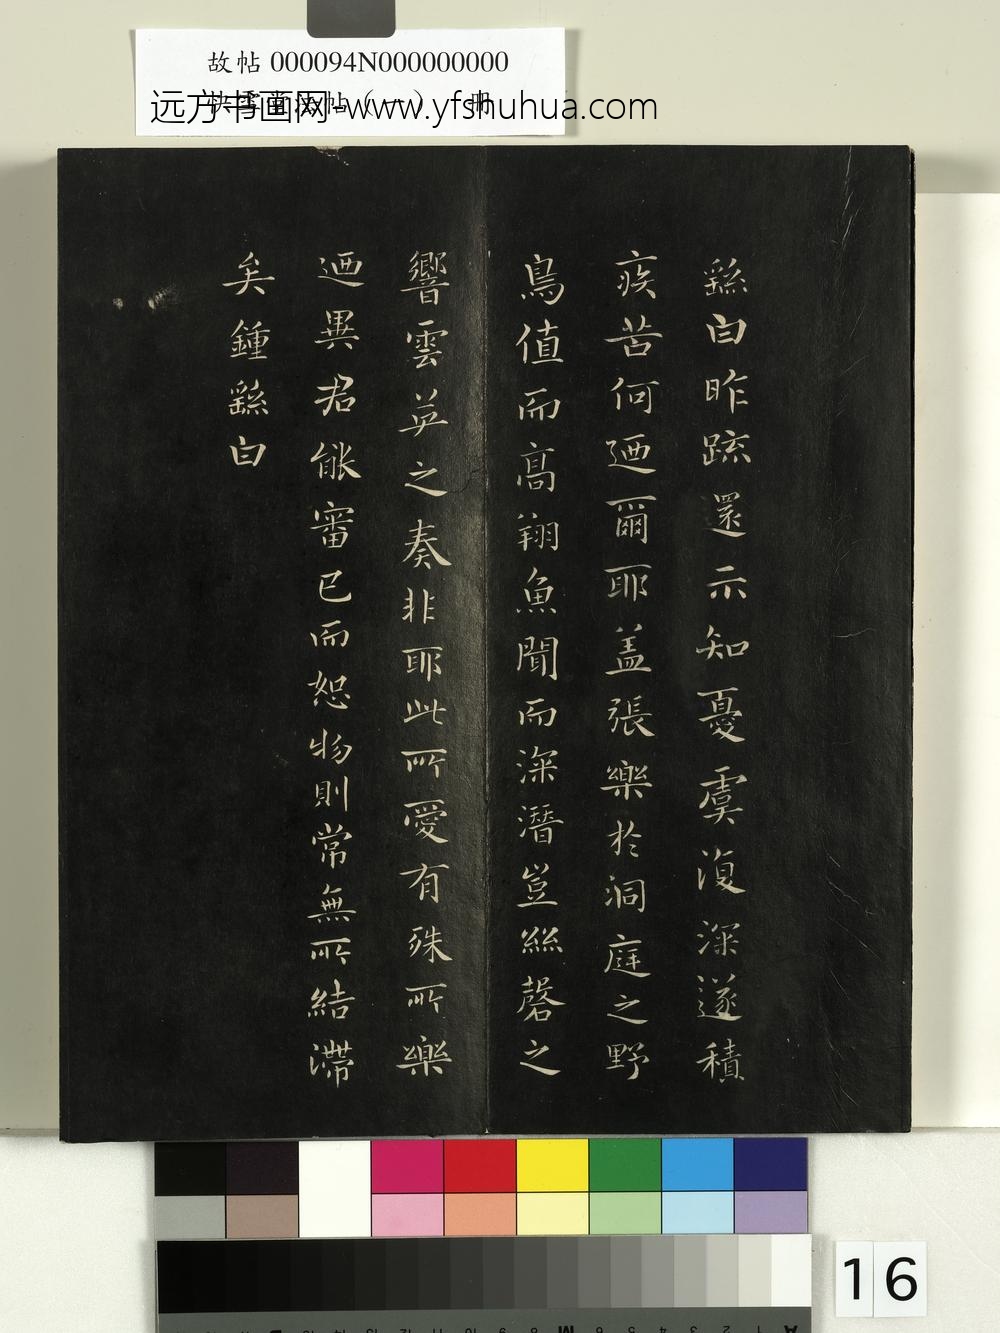 故帖 000094N000000000
快雪堂法帖（一） 册
远方书画网-www.yfshuhua.com
繇白昨疏還示知憂虞復深遂積
疾苦何迺爾耶盖張樂於洞庭之野
鳥值而高翔魚聞而深潛豈絲磬之
響雲英之奏非耶此所愛有殊所樂
迺異君能審已而恕物則常無所結滯
矣鍾繇白
16